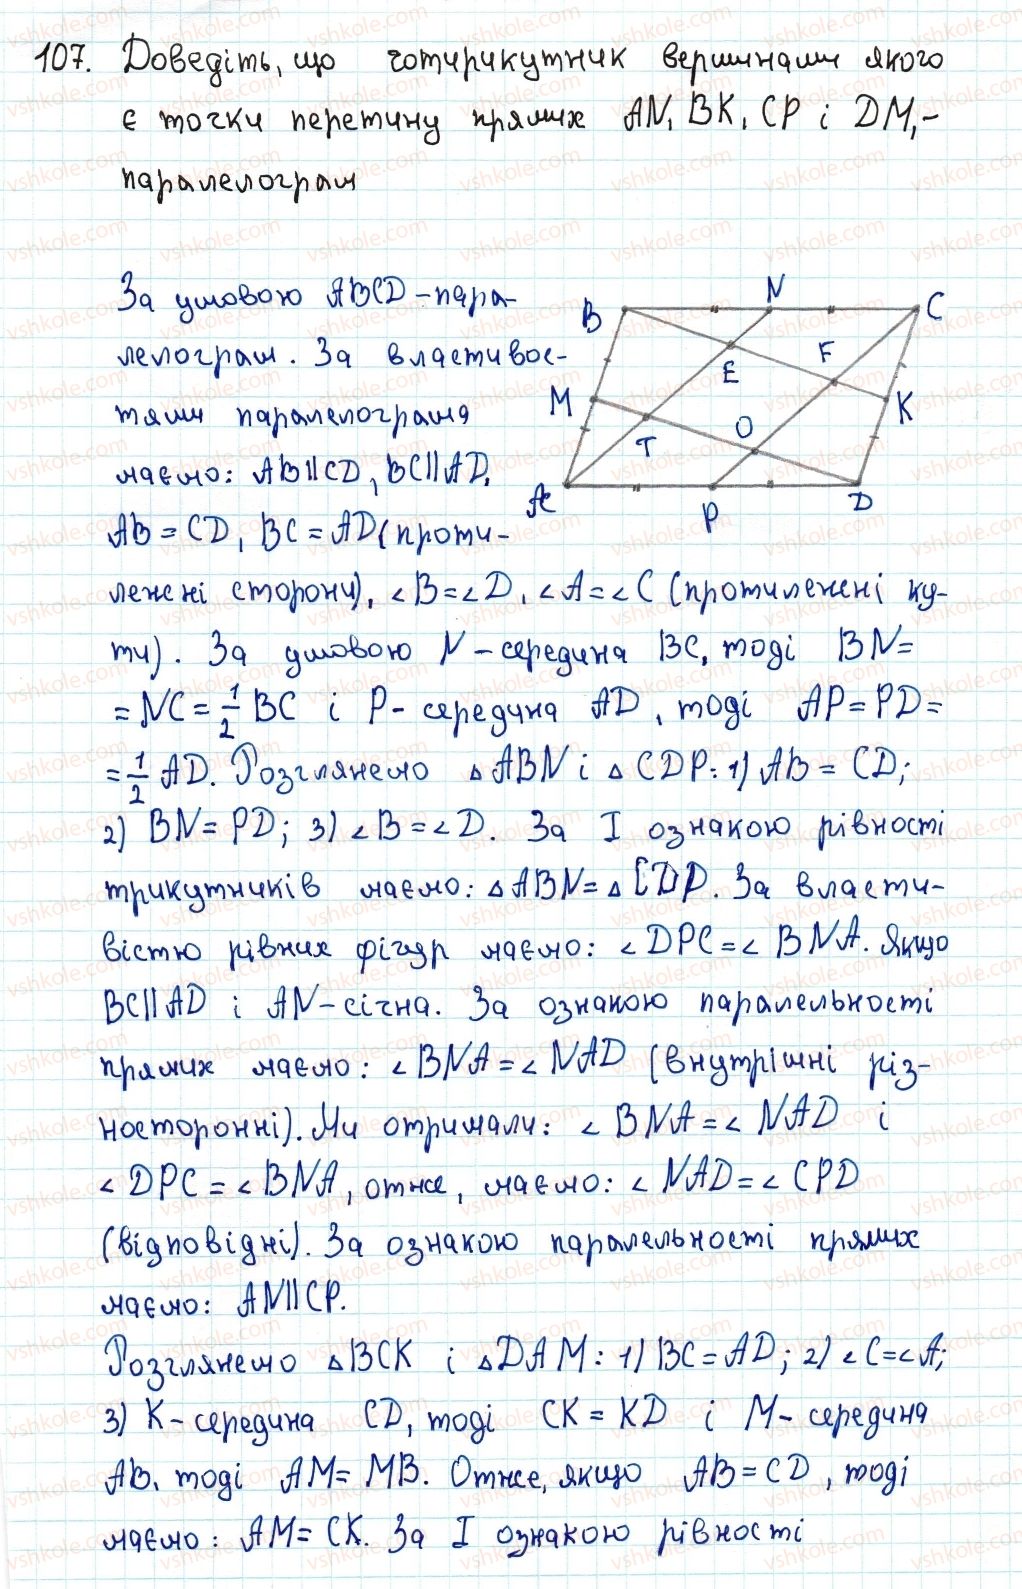 107. Доведіть, що чотирикутник вершинами якого
є точки перетину прямих AN, BK, CP і DM,-
паралелограм
За умовою ABCD-пара-
лелограм. За властивос-
тями паралелограма
маємо: AB||CD, BC||AD,
AB = CD, BC = AD (проти-
лежні сторони), ∠B=∠D, ∠A=∠C (протилежні ку-
ти). За умовою N-середина BC, тоді BN=
=NC=1/2 BC і P-середина AD, тоді AP=PD=
=1/2 AD. Розглянемо △ABN і △CDP: 1) AB = CD;
2) BN=PD; 3) ∠B=∠D. За I ознакою рівності
трикутників маємо: △ABN=△CDP. За власти-
вістю рівних фігур маємо: ∠DPC=∠BNA. Якщо
BC||AD і AN-січна. За ознакою паралельності
прямих маємо: ∠BNA=∠NAD (внутрішні різ-
носторонні). Ми отримали: ∠BNA=∠NAD і
∠DPC=∠BNA, отже, маємо: ∠NAD=∠CPD
(відповідні). За ознакою паралельності прямих
маємо: AN||CP.
Розглянемо △BCK і △DAM: 1) BC=AD; 2) ∠C=∠A;
3) K-середина CD, тоді CK=KD і M-середина
AB, тоді AM=MB. Отже, якщо AB=CD, тоді
маємо: AM=CK. За I ознакою рівності
B
N
C
E
F
M
K
T
O
A
P
D
vshkole.com